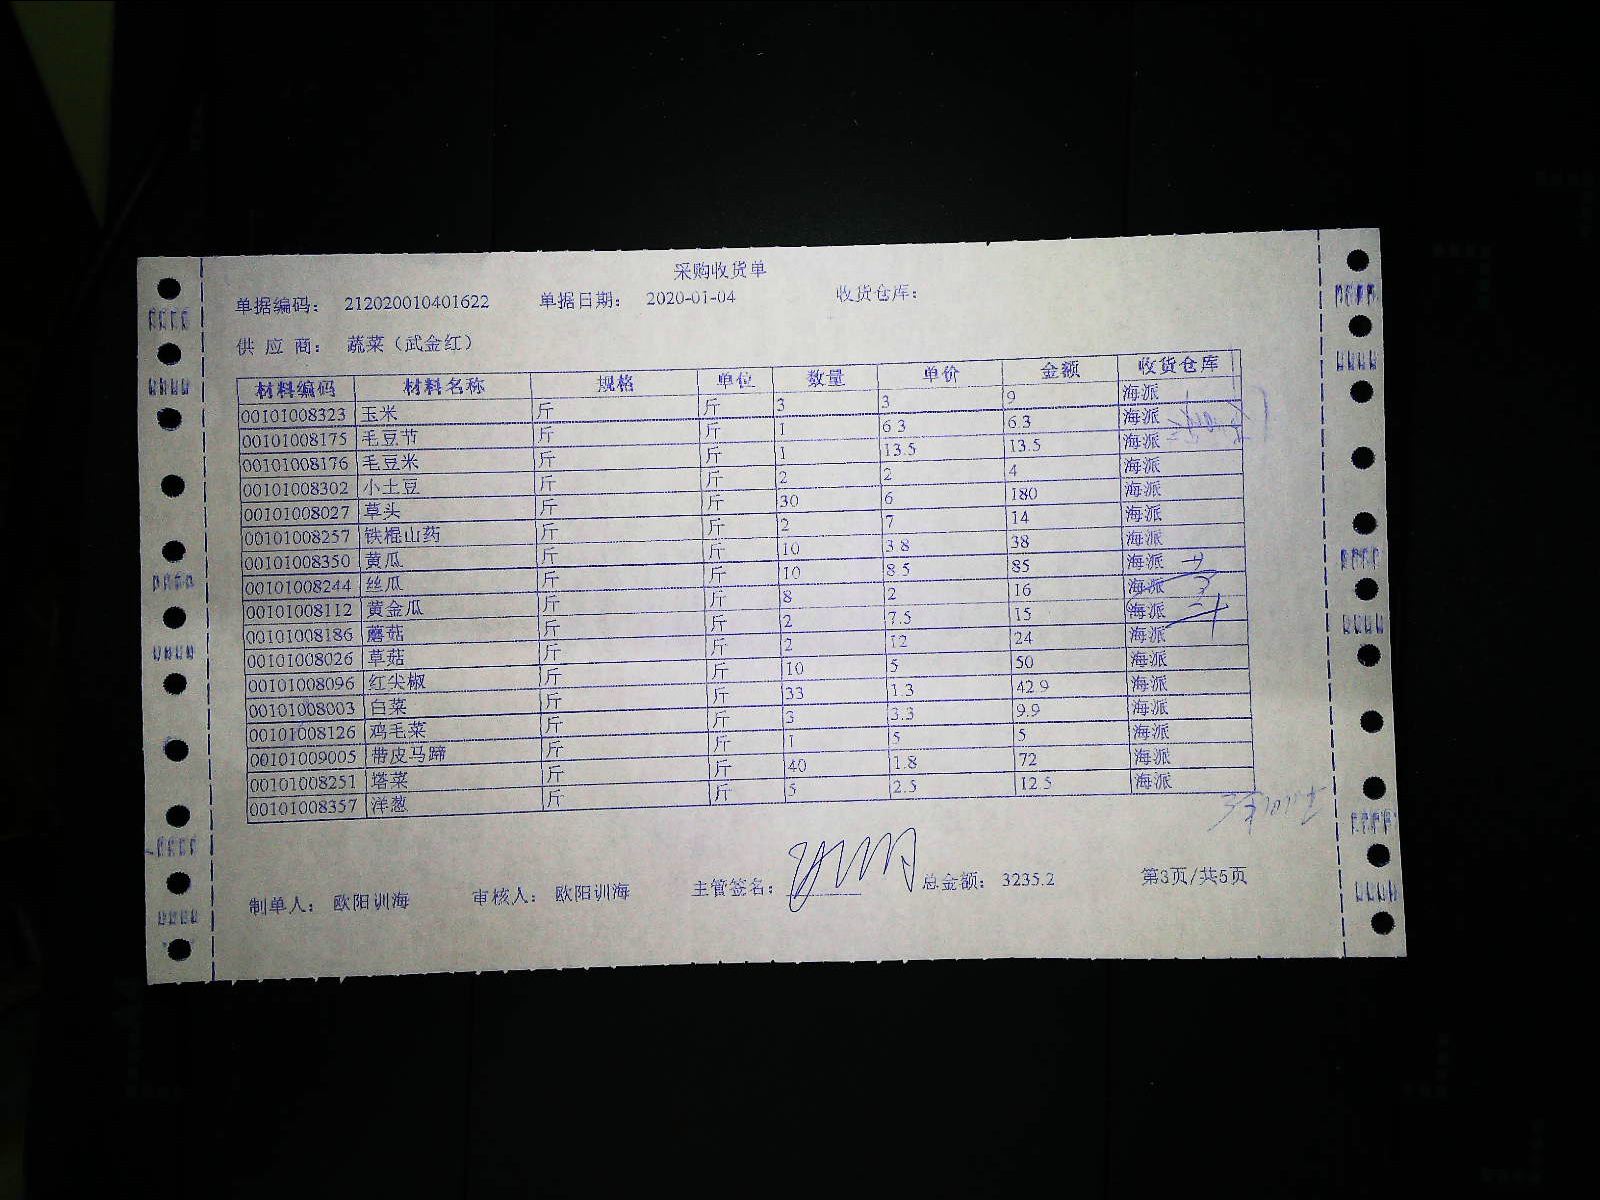 采购收货单
单据编码： 212020010401622 单据日期： 2020-01-04 收货仓库：
供 应 商： 蔬菜（武金红）
材料编码 材料名称 规格 单位 数量 单价 金额 收货仓库
00101008323 玉米 斤 斤 3 3 9 海派
00101008175 毛豆节 斤 斤 1 6.3 6.3 海派
00101008176 毛豆米 斤 斤 1 13.5 13.5 海派
00101008302 小土豆 斤 斤 2 2 4 海派
00101008027 草头 斤 斤 30 6 180 海派
00101008257 铁棍山药 斤 斤 2 7 14 海派
00101008350 黄瓜 斤 斤 10 3.8 38 海派
00101008244 丝瓜 斤 斤 10 8.5 85 海派
00101008112 黄金瓜 斤 斤 8 2 16 海派
00101008186 蘑菇 斤 斤 2 7.5 15 海派
00101008026 草菇 斤 斤 2 12 24 海派
00101008096 红尖椒 斤 斤 10 5 50 海派
00101008003 白菜 斤 斤 33 1.3 42.9 海派
00101008126 鸡毛菜 斤 斤 3 3.3 9.9 海派
00101009005 带皮马蹄 斤 斤 1 5 5 海派
00101008251 塔菜 斤 斤 40 1.8 72 海派
00101008357 洋葱 斤 斤 5 2.5 12.5 海派
制单人： 欧阳训海 审核人： 欧阳训海 主管签名： 总金额： 3235.2 第3页/共5页